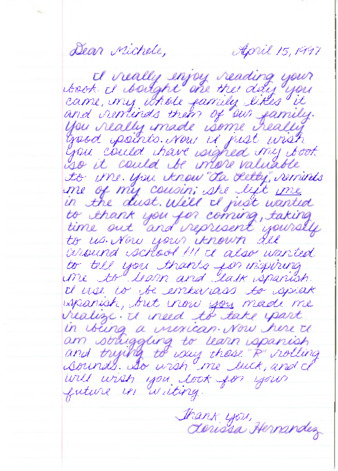 Dear Michele, April 15, 1997
I really enjoy reading your
book. I bought one the day you
came, my whole family likes it
and reminds them of our family.
You really made some really
good points. Now I just wish
you could have signed my book
so it could be more valuable
to me. You know "La Letty," reminds
me of my cousin; she left me
in the dust. Well I just wanted
to thank you for coming, taking
time out and represent yourself
to us. Now your known all
around school!!! I also wanted
to tell you thanks for inspiring
me to learn and talk spanish.
I use to be embarass to speak
spanish, but now you made me
realize. I need to take part
in being a mexican. Now here I
am struggling to learn spanish
and trying to say those "R" rolling
sounds. So wish me luck, and I
will wish you luck for your
future in writing.
Thank you,
Lorissa Hernandez